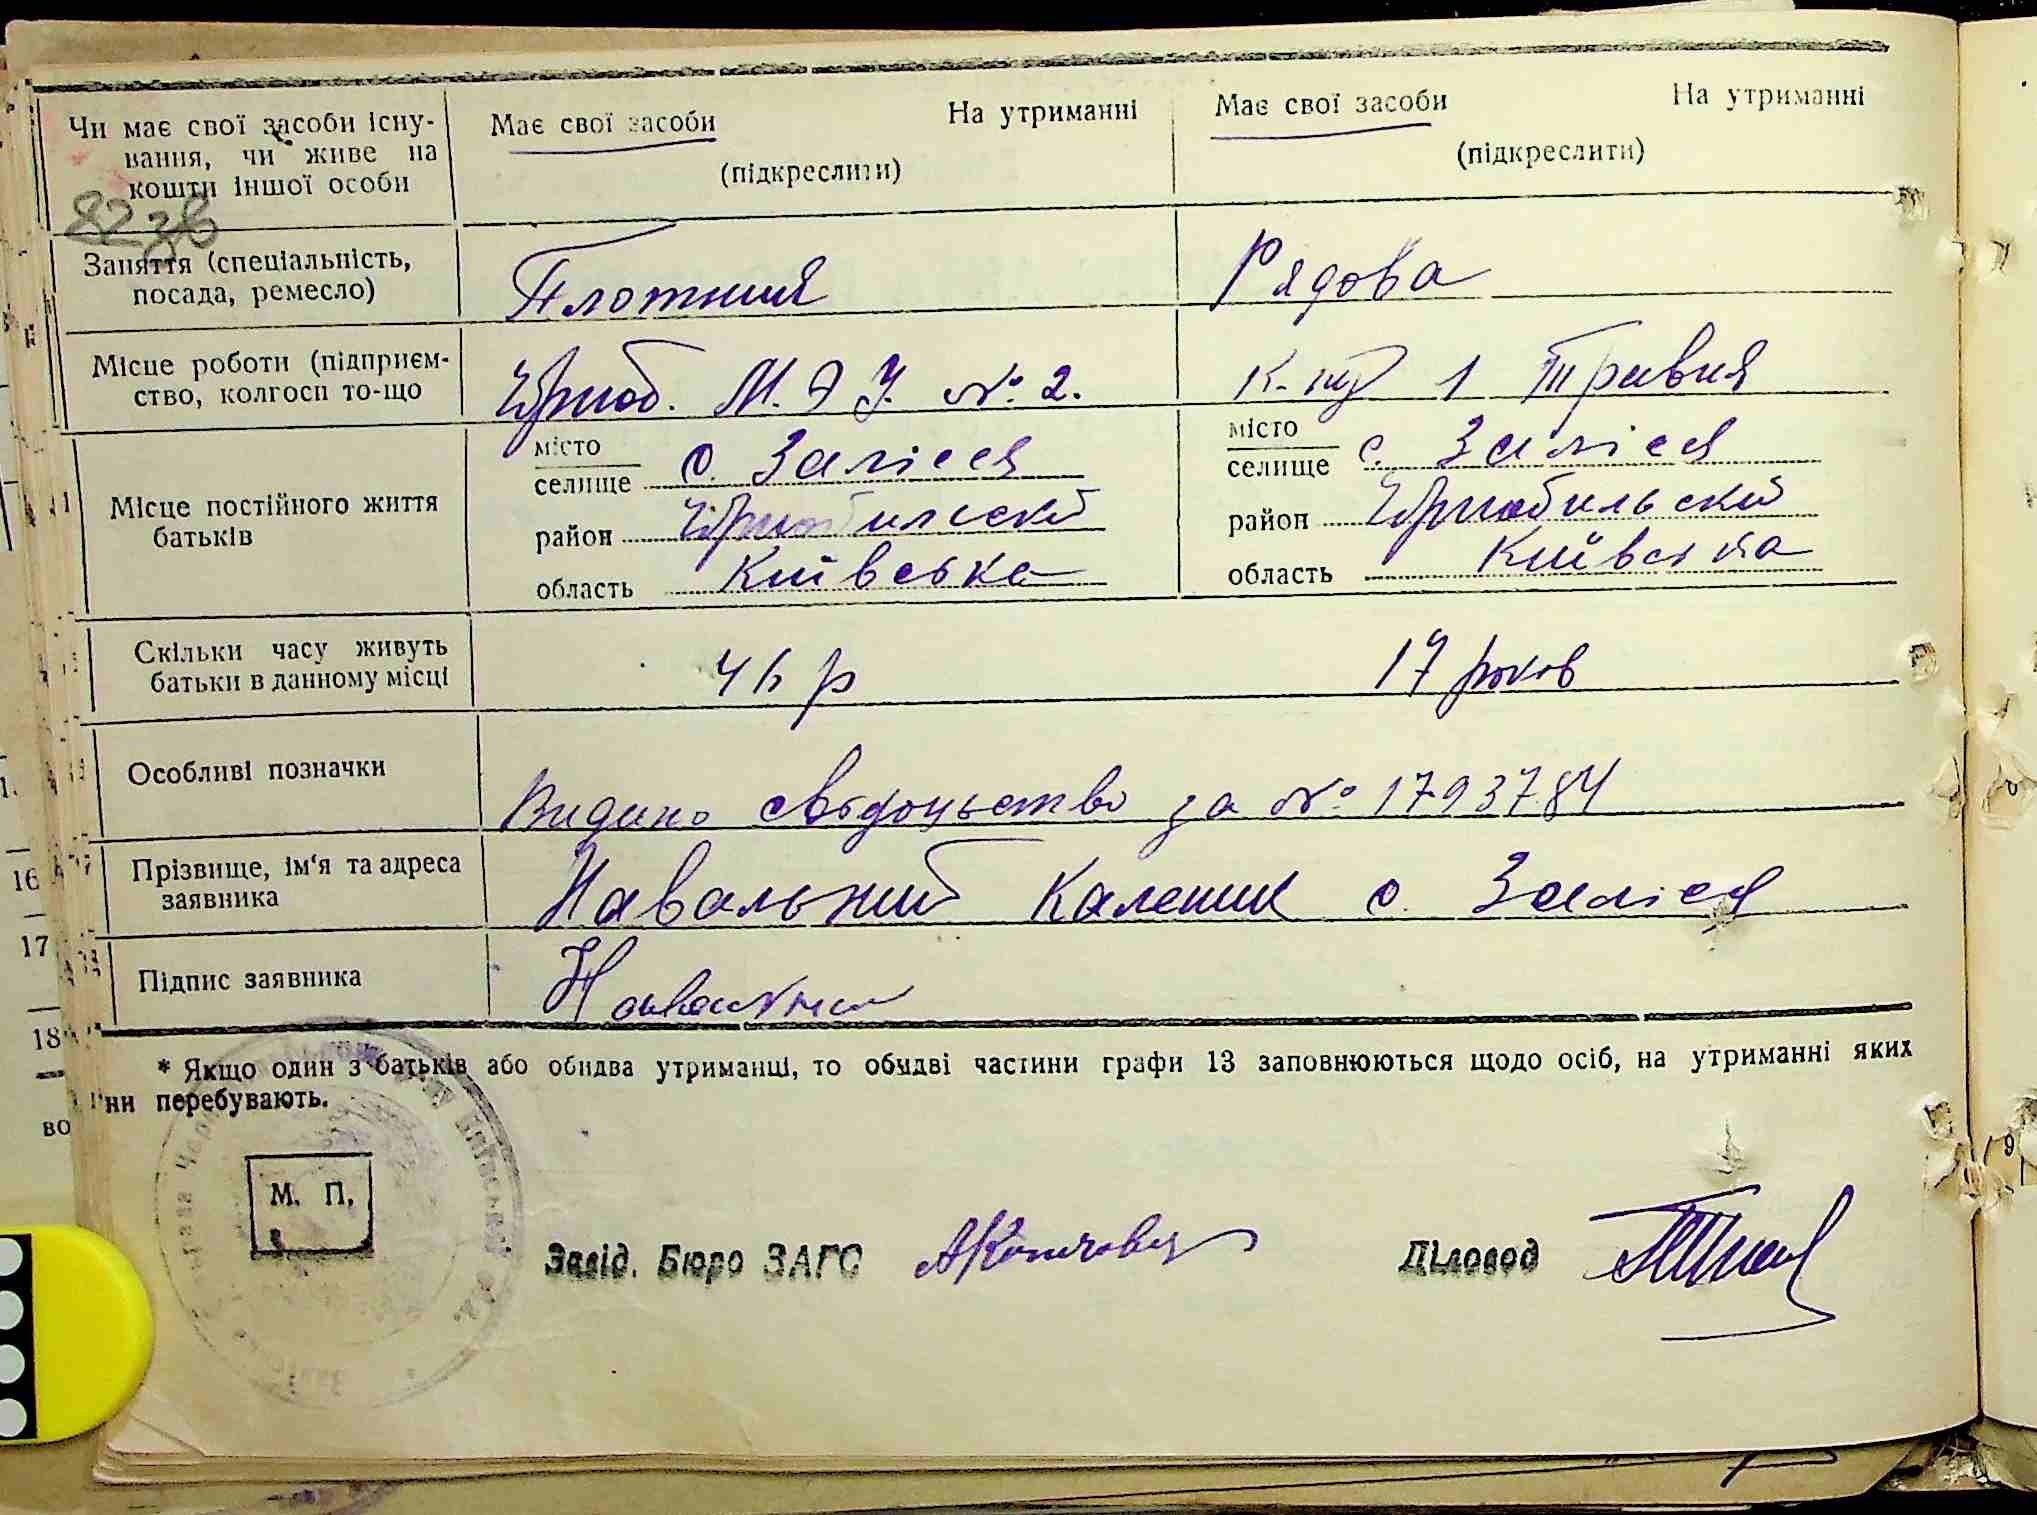 Чи має свої засоби існу-
вання, чи живе на
кошти іншої особи
Має свої засоби На утриманні
(підкреслити)
Має свої засоби На утриманні
(підкреслити)
8238
Заняття (спеціальність,
посада, ремесло)
Плотник
Рядова
Місце роботи (підприєм-
ство, колгосп то-що
Чорноб. М. Д У. № 2.
к-пу 1 Травня
Місце постійного життя
батьків
місто
селище с. Залісся
район Чорнобильский
область Київська
місто
селище с. Залісся
район Чорнобильский
область Київська
Скільки часу живуть
батьки в данному місці
46 р
17 років
Особливі позначки
Видано свідоцьство за № 1793784
Прізвище, ім'я та адреса
заявника
Навальний Каленик с. Залісся
Підпис заявника
Навальний
* Якщо один з батьків або обидва утриманці, то обидві частини графи 13 заповнюються щодо осіб, на утриманні яких
ни перебувають.
М. П.
Завід. Бюро ЗАГС
Діловод
16
17
18
во